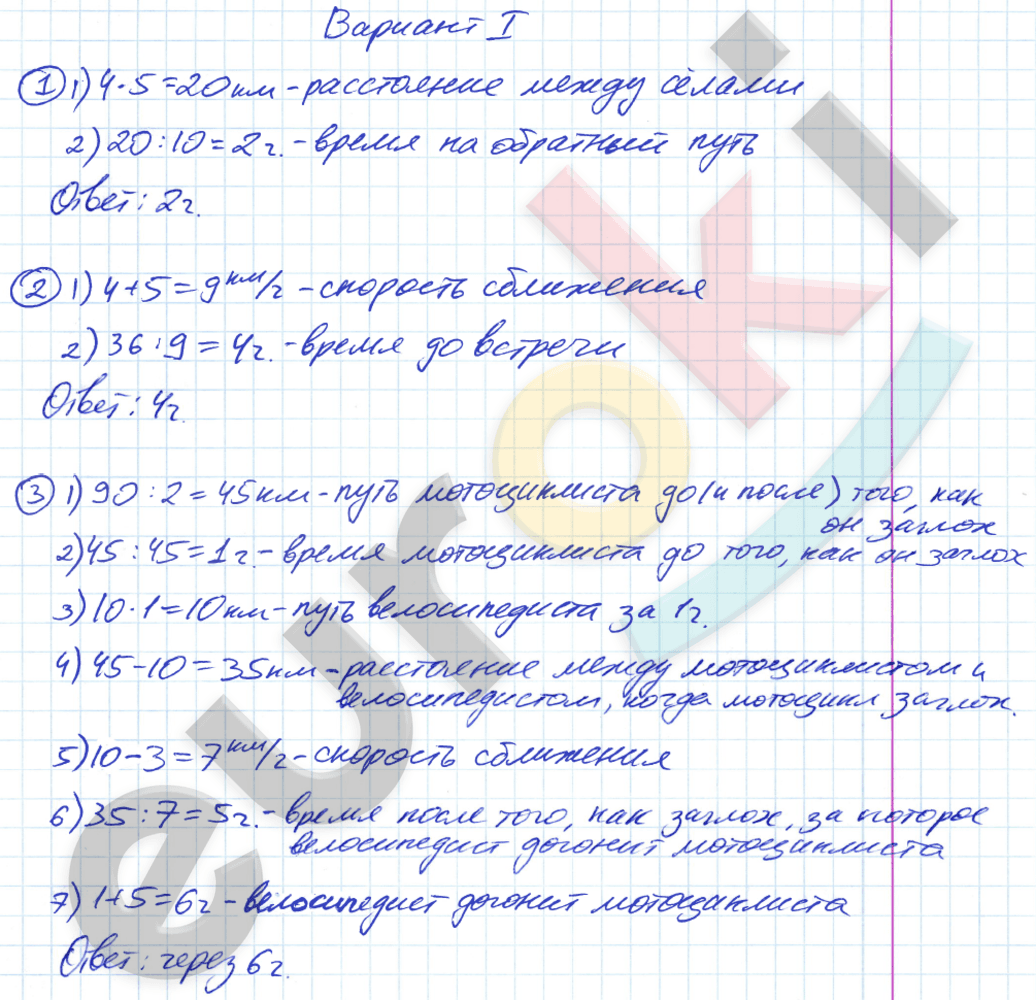 Вариант I
1 1) 4·5=20км - расстояние между сёлами
2) 20:10=2ч. - время на обратный путь
Ответ: 2ч.
2 1) 4+5=9км/ч - скорость сближения
2) 36:9=4ч. - время до встречи
Ответ: 4ч.
3 1) 90:2=45км - путь мотоциклиста до (и после) того, как
он заглох
2) 45:45=1ч. - время мотоциклиста до того, как он заглох
3) 10·1=10км - путь велосипедиста за 1ч.
4) 45-10=35км - расстояние между мотоциклистом и
велосипедистом, когда мотоцикл заглох.
5) 10-3=7км/ч - скорость сближения
6) 35:7=5ч. - время после того, как заглох, за которое
велосипедист догонит мотоциклиста
7) 1+5=6ч - велосипедист догонит мотоциклиста
Ответ: через 6ч.
euroki